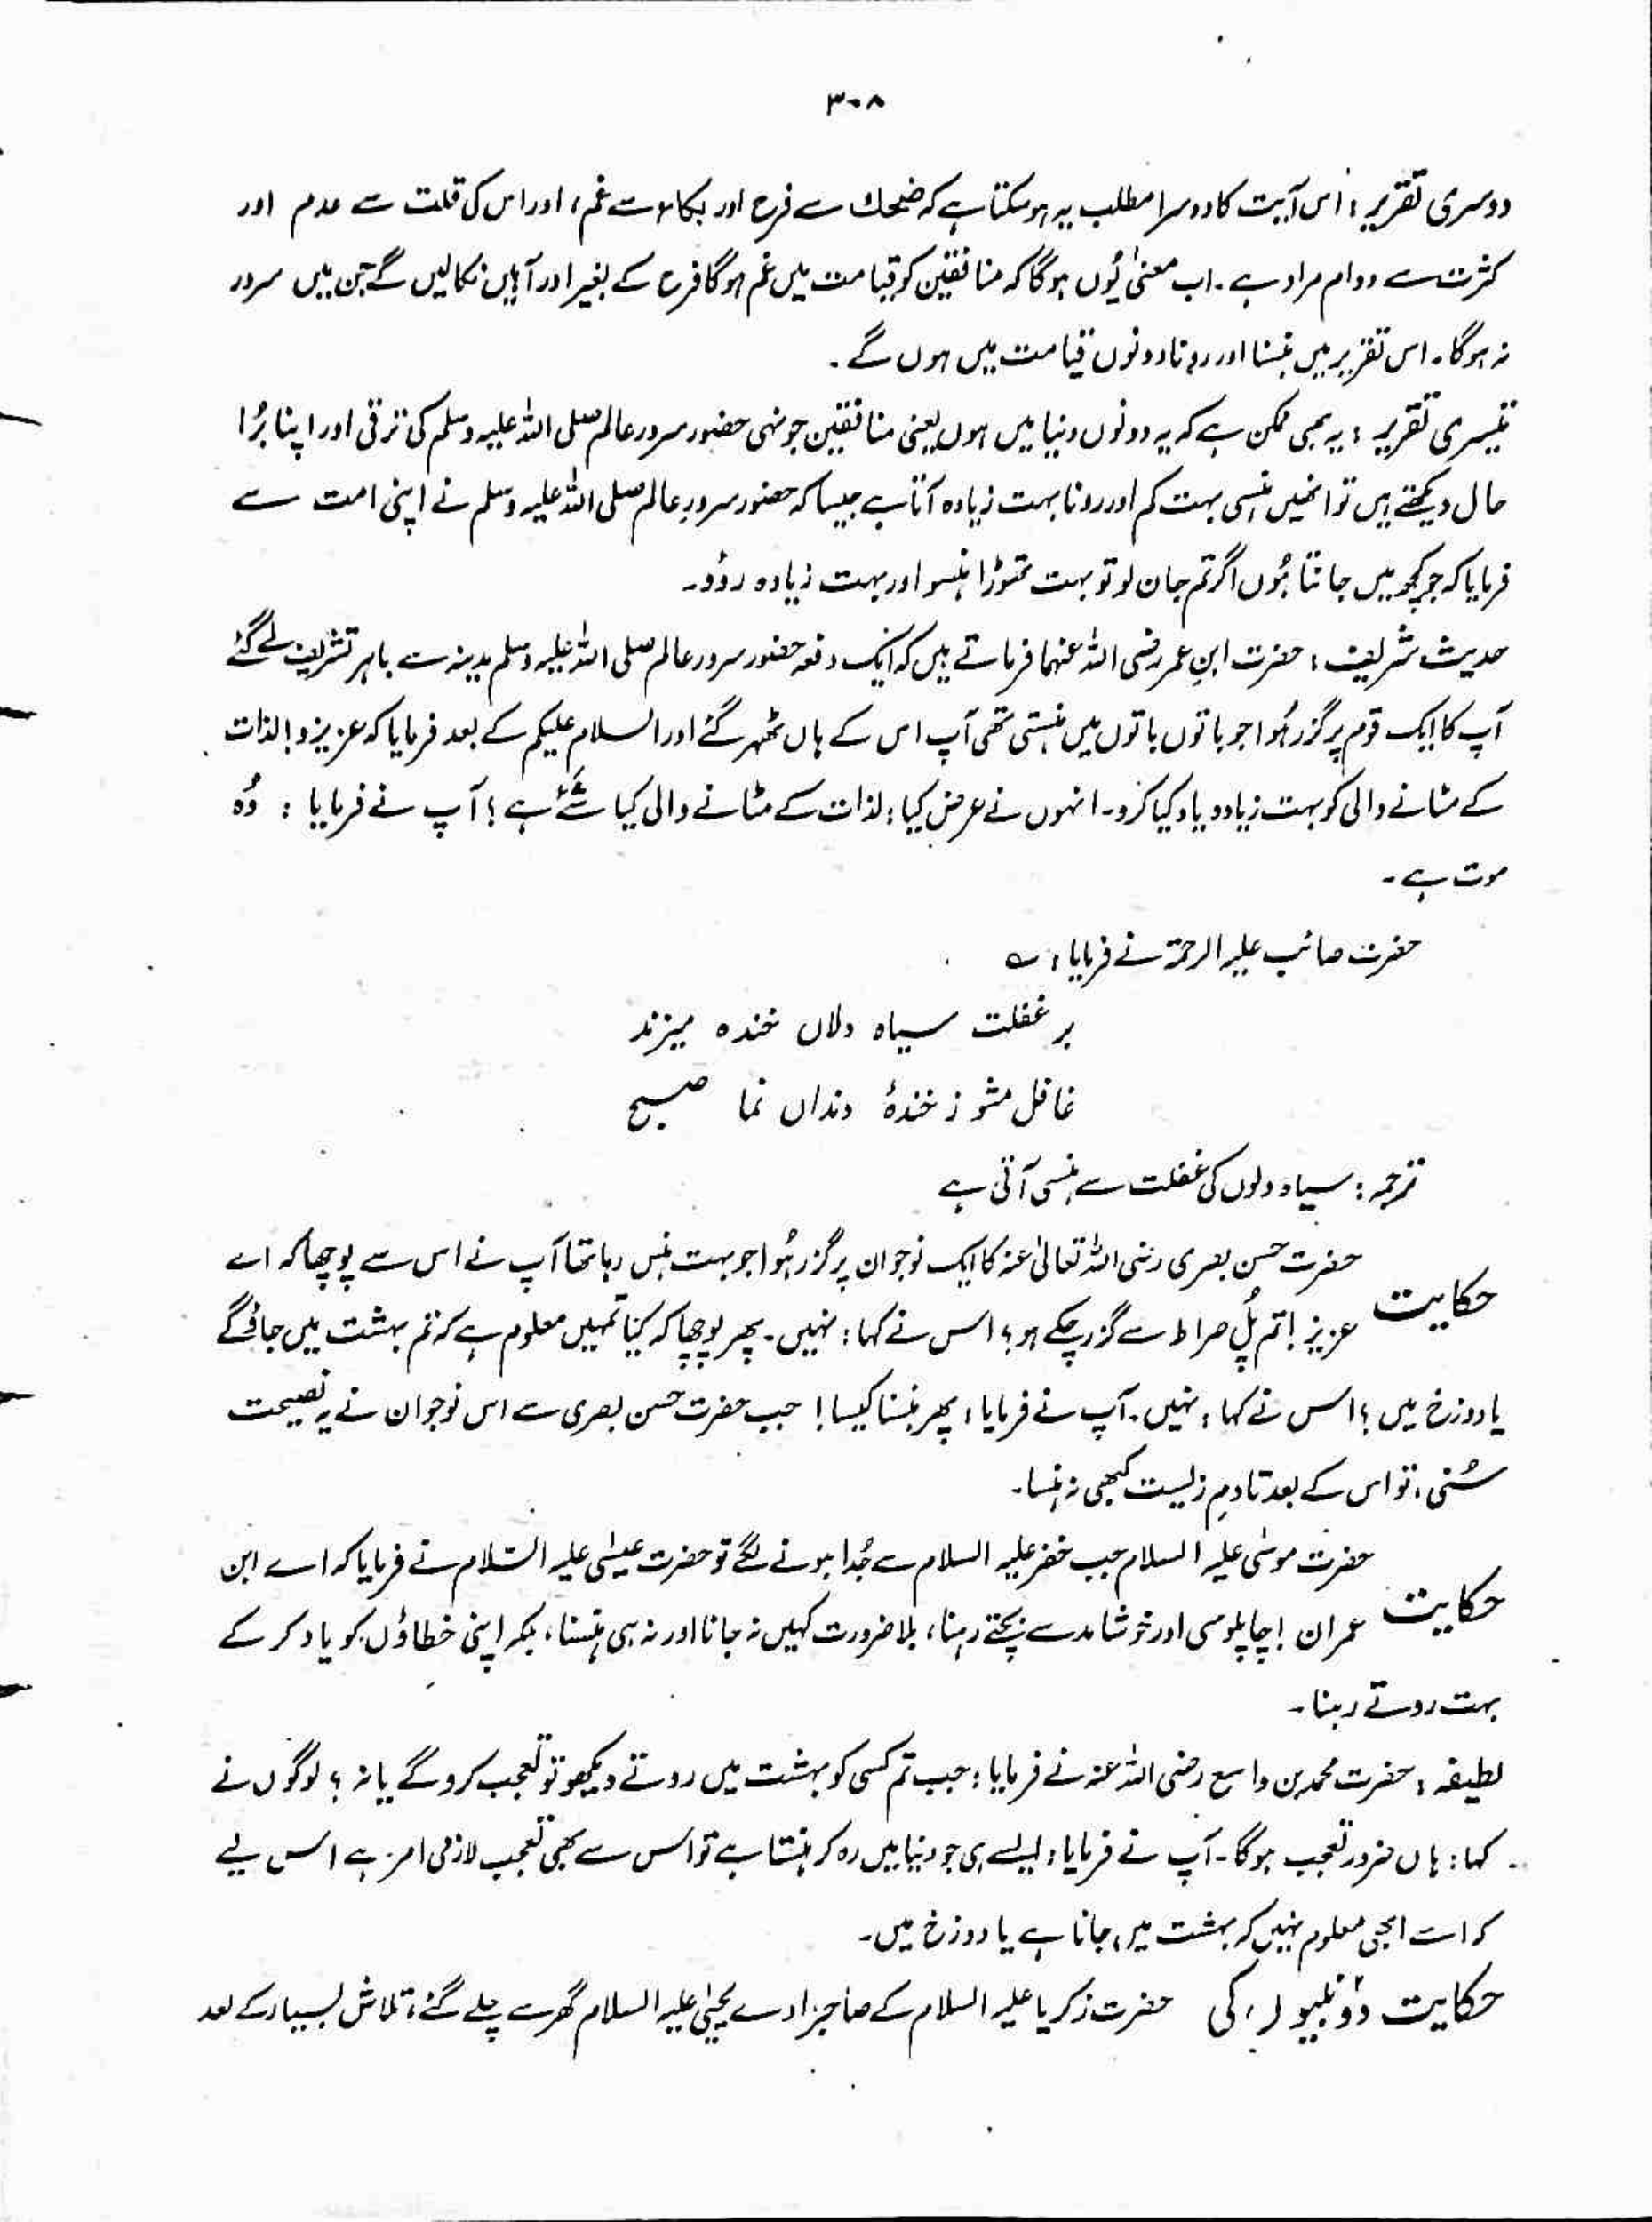 ۳۰۸
دوسری تقریر : اس آیت کا دوسرا مطلب یہ ہو سکتا ہے کہ ضحک سے فرح اور بکاء سے غم، اور اس کی قلت سے عدم اور
کثرت سے دوام مراد ہے ۔ اب معنیٰ یُوں ہوگا کہ منافقین کو قیامت میں غم ہوگا فرح کے بغیر اور آہیں نکالیں گے جن میں سرور
نہ ہوگا ۔ اس تقریر میں ہنسنا اور رونا دونوں قیامت میں ہوں گے ۔
تیسری تقریر : یہ بھی ممکن ہے کہ یہ دونوں دنیا میں ہوں یعنی منافقین جونہی حضور سرور عالم صلی اللہ علیہ وسلم کی ترقی اور اپنا بُرا
حال دیکھتے ہیں تو انھیں ہنسی بہت کم اور رونا بہت زیادہ آتا ہے جیسا کہ حضور سرورِ عالم صلی اللہ علیہ وسلم نے اپنی امت سے
فرمایا کہ جو کچھ میں جانتا ہُوں اگر تم جان لو تو بہت تھوڑا ہنسو اور بہت زیادہ روؤ ۔
حدیث شریف : حضرت ابنِ عمر رضی اللہ عنہما فرماتے ہیں کہ ایک دفعہ حضور سرور عالم صلی اللہ علیہ وسلم مدینہ سے باہر تشریف لے گئے
آپ کا ایک قوم پر گزر ہُوا جو باتوں باتوں میں ہنستی تھی آپ اس کے ہاں ٹھہر گئے اور السلام علیکم کے بعد فرمایا کہ عزیزو! لذات
کے مٹانے والی کو بہت زیادہ یاد کیا کرو ۔ انہوں نے عرض کیا : لذات کے مٹانے والی کیا شَے ہے ؟ آپ نے فرمایا : وُہ
موت ہے ۔
حضرت صائب علیہ الرحمۃ نے فرمایا : ؎
بر غفلت سیاہ دلاں خندہ میزند
غافل مشو ز خندۂ دنداں نما صبح
ترجمہ : سیاہ دلوں کی غفلت سے ہنسی آتی ہے
حضرت حسن بصری رضی اللہ تعالیٰ عنہ کا ایک نوجوان پر گزر ہُوا جو بہت ہنس رہا تھا آپ نے اس سے پوچھا کہ اے
حکایت عزیز ! تم پُل صراط سے گزر چکے ہو ؟ اس نے کہا : نہیں ۔ پھر پوچھا کہ کیا تمہیں معلوم ہے کہ تم بہشت میں جاؤ گے
یا دوزخ میں ؟ اس نے کہا : نہیں ۔ آپ نے فرمایا : پھر ہنسنا کیسا ! جب حضرت حسن بصری سے اس نوجوان نے یہ نصیحت
سُنی، تو اس کے بعد تادمِ زیست کبھی نہ ہنسا ۔
حضرت موسٰی علیہ السلام جب خضر علیہ السلام سے جُدا ہونے لگے تو حضرت عیسٰی علیہ السّلام نے فرمایا کہ اے ابن
حکایت عمران ! چاپلوسی اور خوشامد سے بچتے رہنا، بلا ضرورت کہیں نہ جانا اور نہ ہی ہنسنا، بلکہ اپنی خطاؤں کو یاد کر کے
بہت روتے رہنا ۔
لطیفہ : حضرت محمد بن واسع رضی اللہ عنہ نے فرمایا : جب تم کسی کو بہشت میں روتے دیکھو تو تعجب کرو گے یا نہ ؟ لوگوں نے
کہا : ہاں ضرور تعجب ہوگا ۔ آپ نے فرمایا : ایسے ہی جو دنیا میں رہ کر ہنستا ہے تو اس سے بھی تعجب لازمی امر ہے اس لیے
کہ اسے ابھی معلوم نہیں کہ بہشت میں جانا ہے یا دوزخ میں ۔
حکایت دو نبیوں کی حضرت زکریا علیہ السلام کے صاحبزادے یحیٰی علیہ السلام گھر سے چلے گئے، تلاش بسیار کے بعد